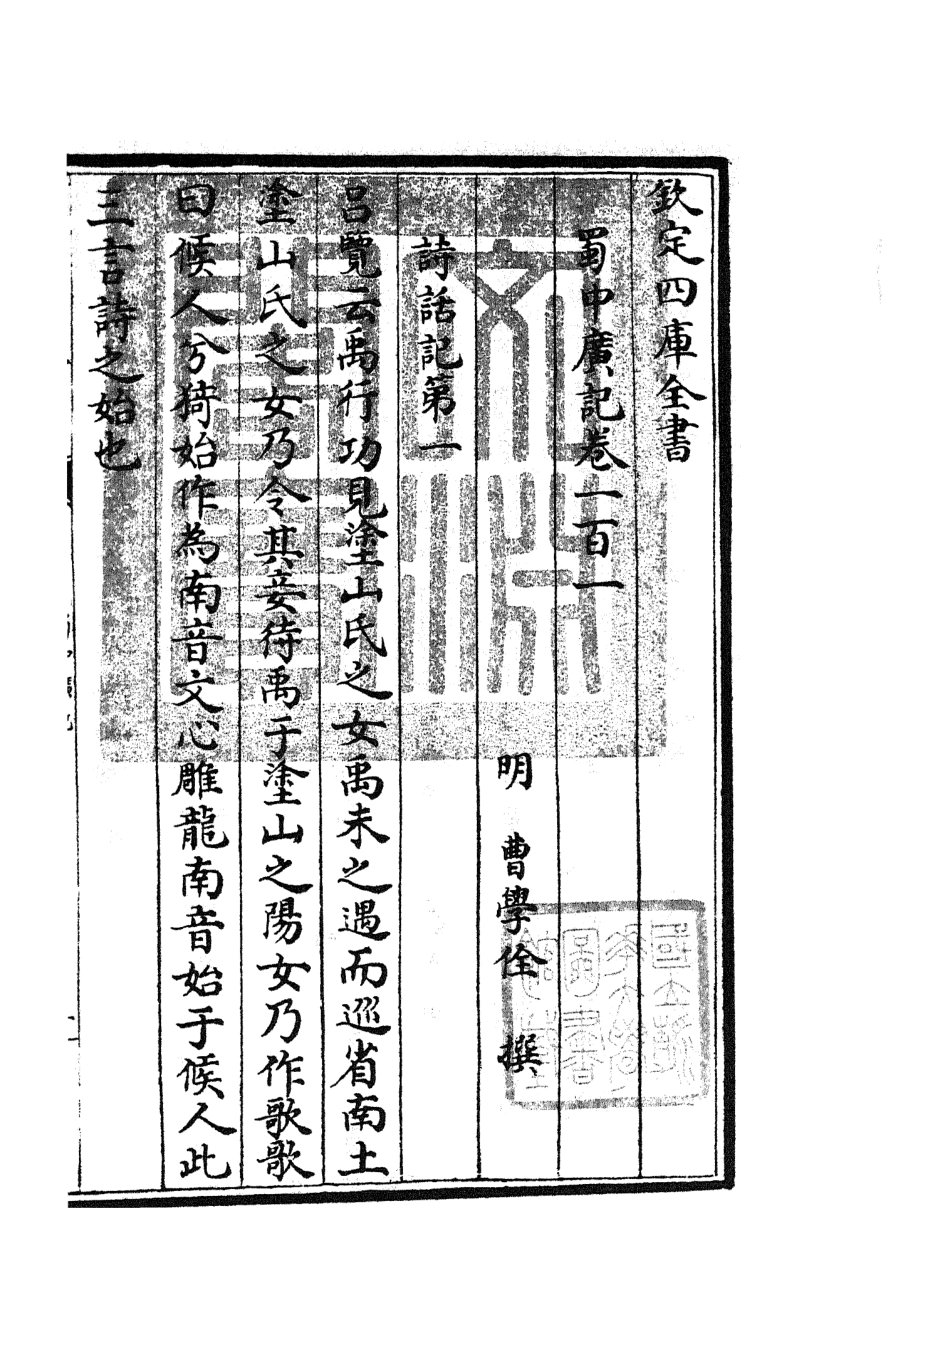 欽定四庫全書
蜀中廣記卷一百一
明 曹學佺 撰
詩話記第一
吕覽云禹行功見塗山氏之女禹未之遇而巡省南土
塗山氏之女乃令其妾待禹于塗山之陽女乃作歌歌
曰候人兮猗始作為南音文心雕龍南音始于候人此
三言詩之始也